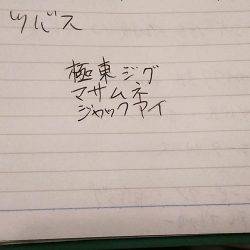 ツバス
極東ジグ
マサムネ
ジャックアイ